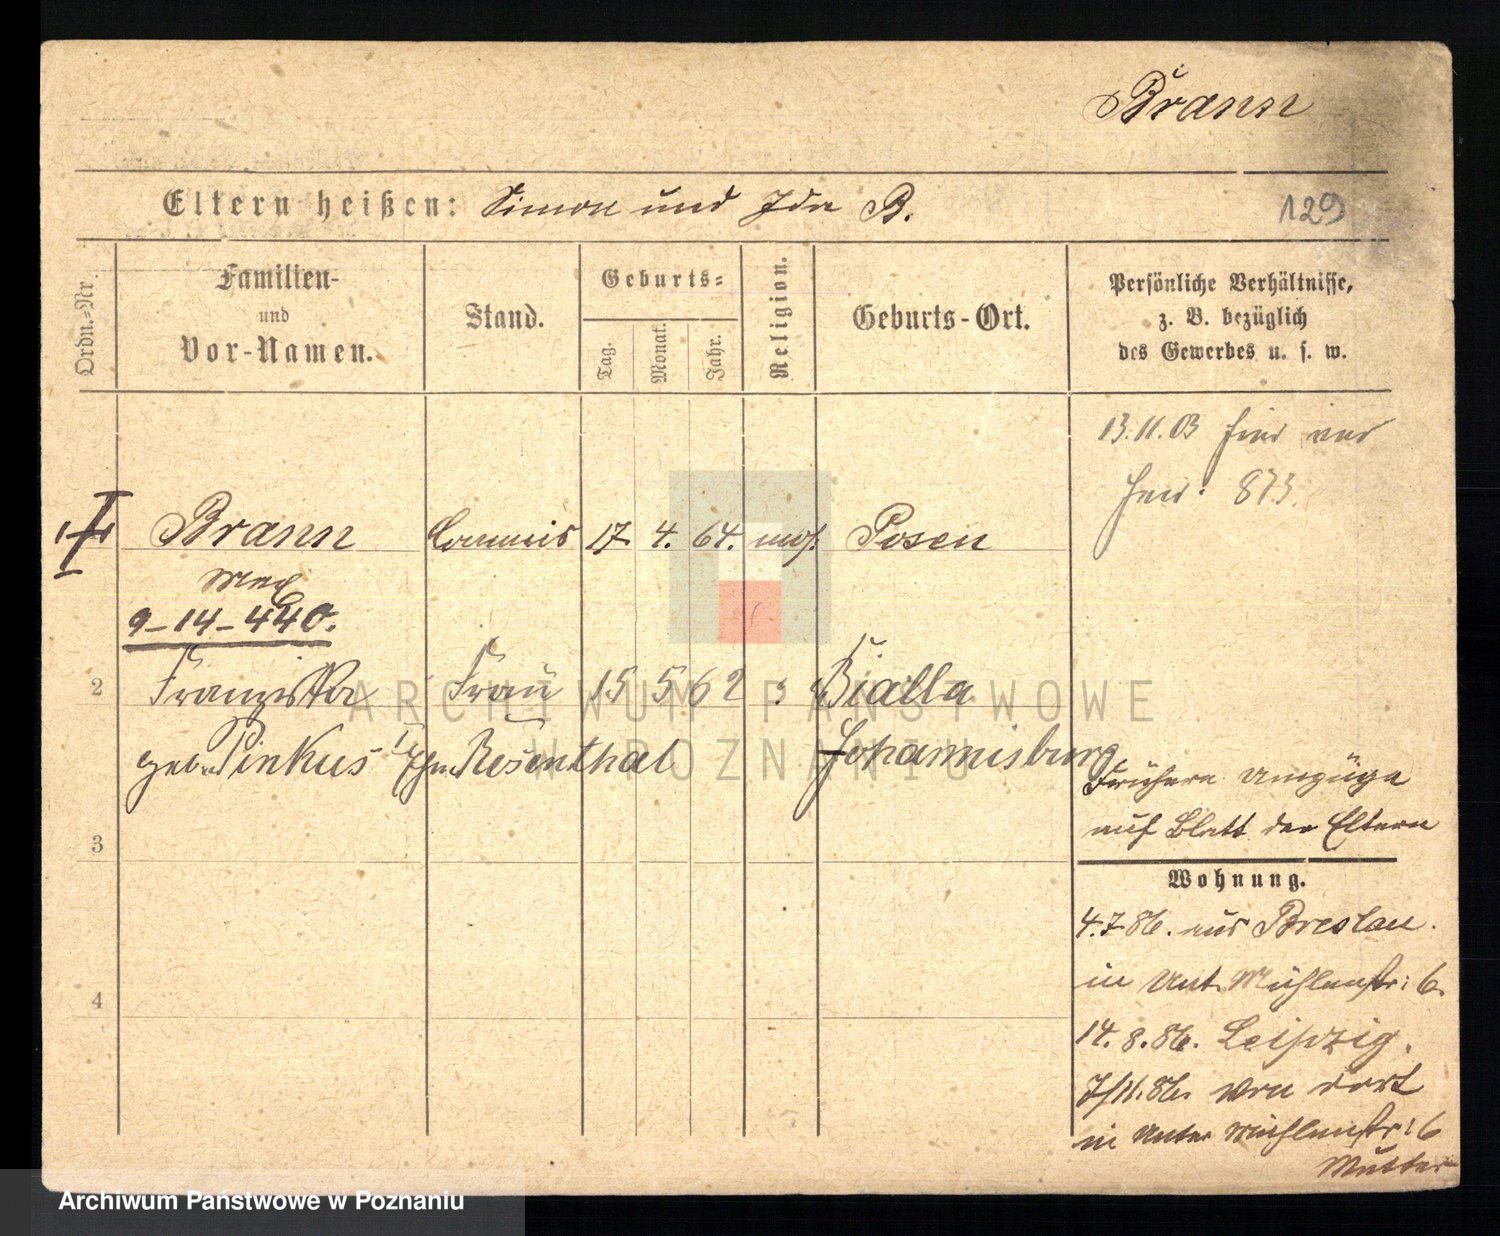 Brann
Eltern heißen: Simon und Ida B.
129
Ordn.-Nr.
Familien-
und
Vor-Namen.
Stand.
Geburts-
Tag.
Monat.
Jahr.
Religion.
Geburts-Ort.
Persönliche Verhältnisse,
z. B. bezüglich
des Gewerbes u. s. w.
13.11.03 hier
873.
Brann Commis 17. 4. 64. mos. Posen
Max
9-14-440.
2 Franziska Frau 15 5 62 Bialla
geb. Pinkus Rosenthal Johannisburg
Frühere Umzüge
auf Blatt der Eltern
3
Wohnung.
4.7.86. aus Breslau.
in Unt. Mühlenstr: 6.
4
14.8.86. Leipzig.
11.86. von dort
in Unter Mühlenstr: 6
Mutter
ARCHIWUM PAŃSTWOWE
W POZNANIU
Archiwum Państwowe w Poznaniu